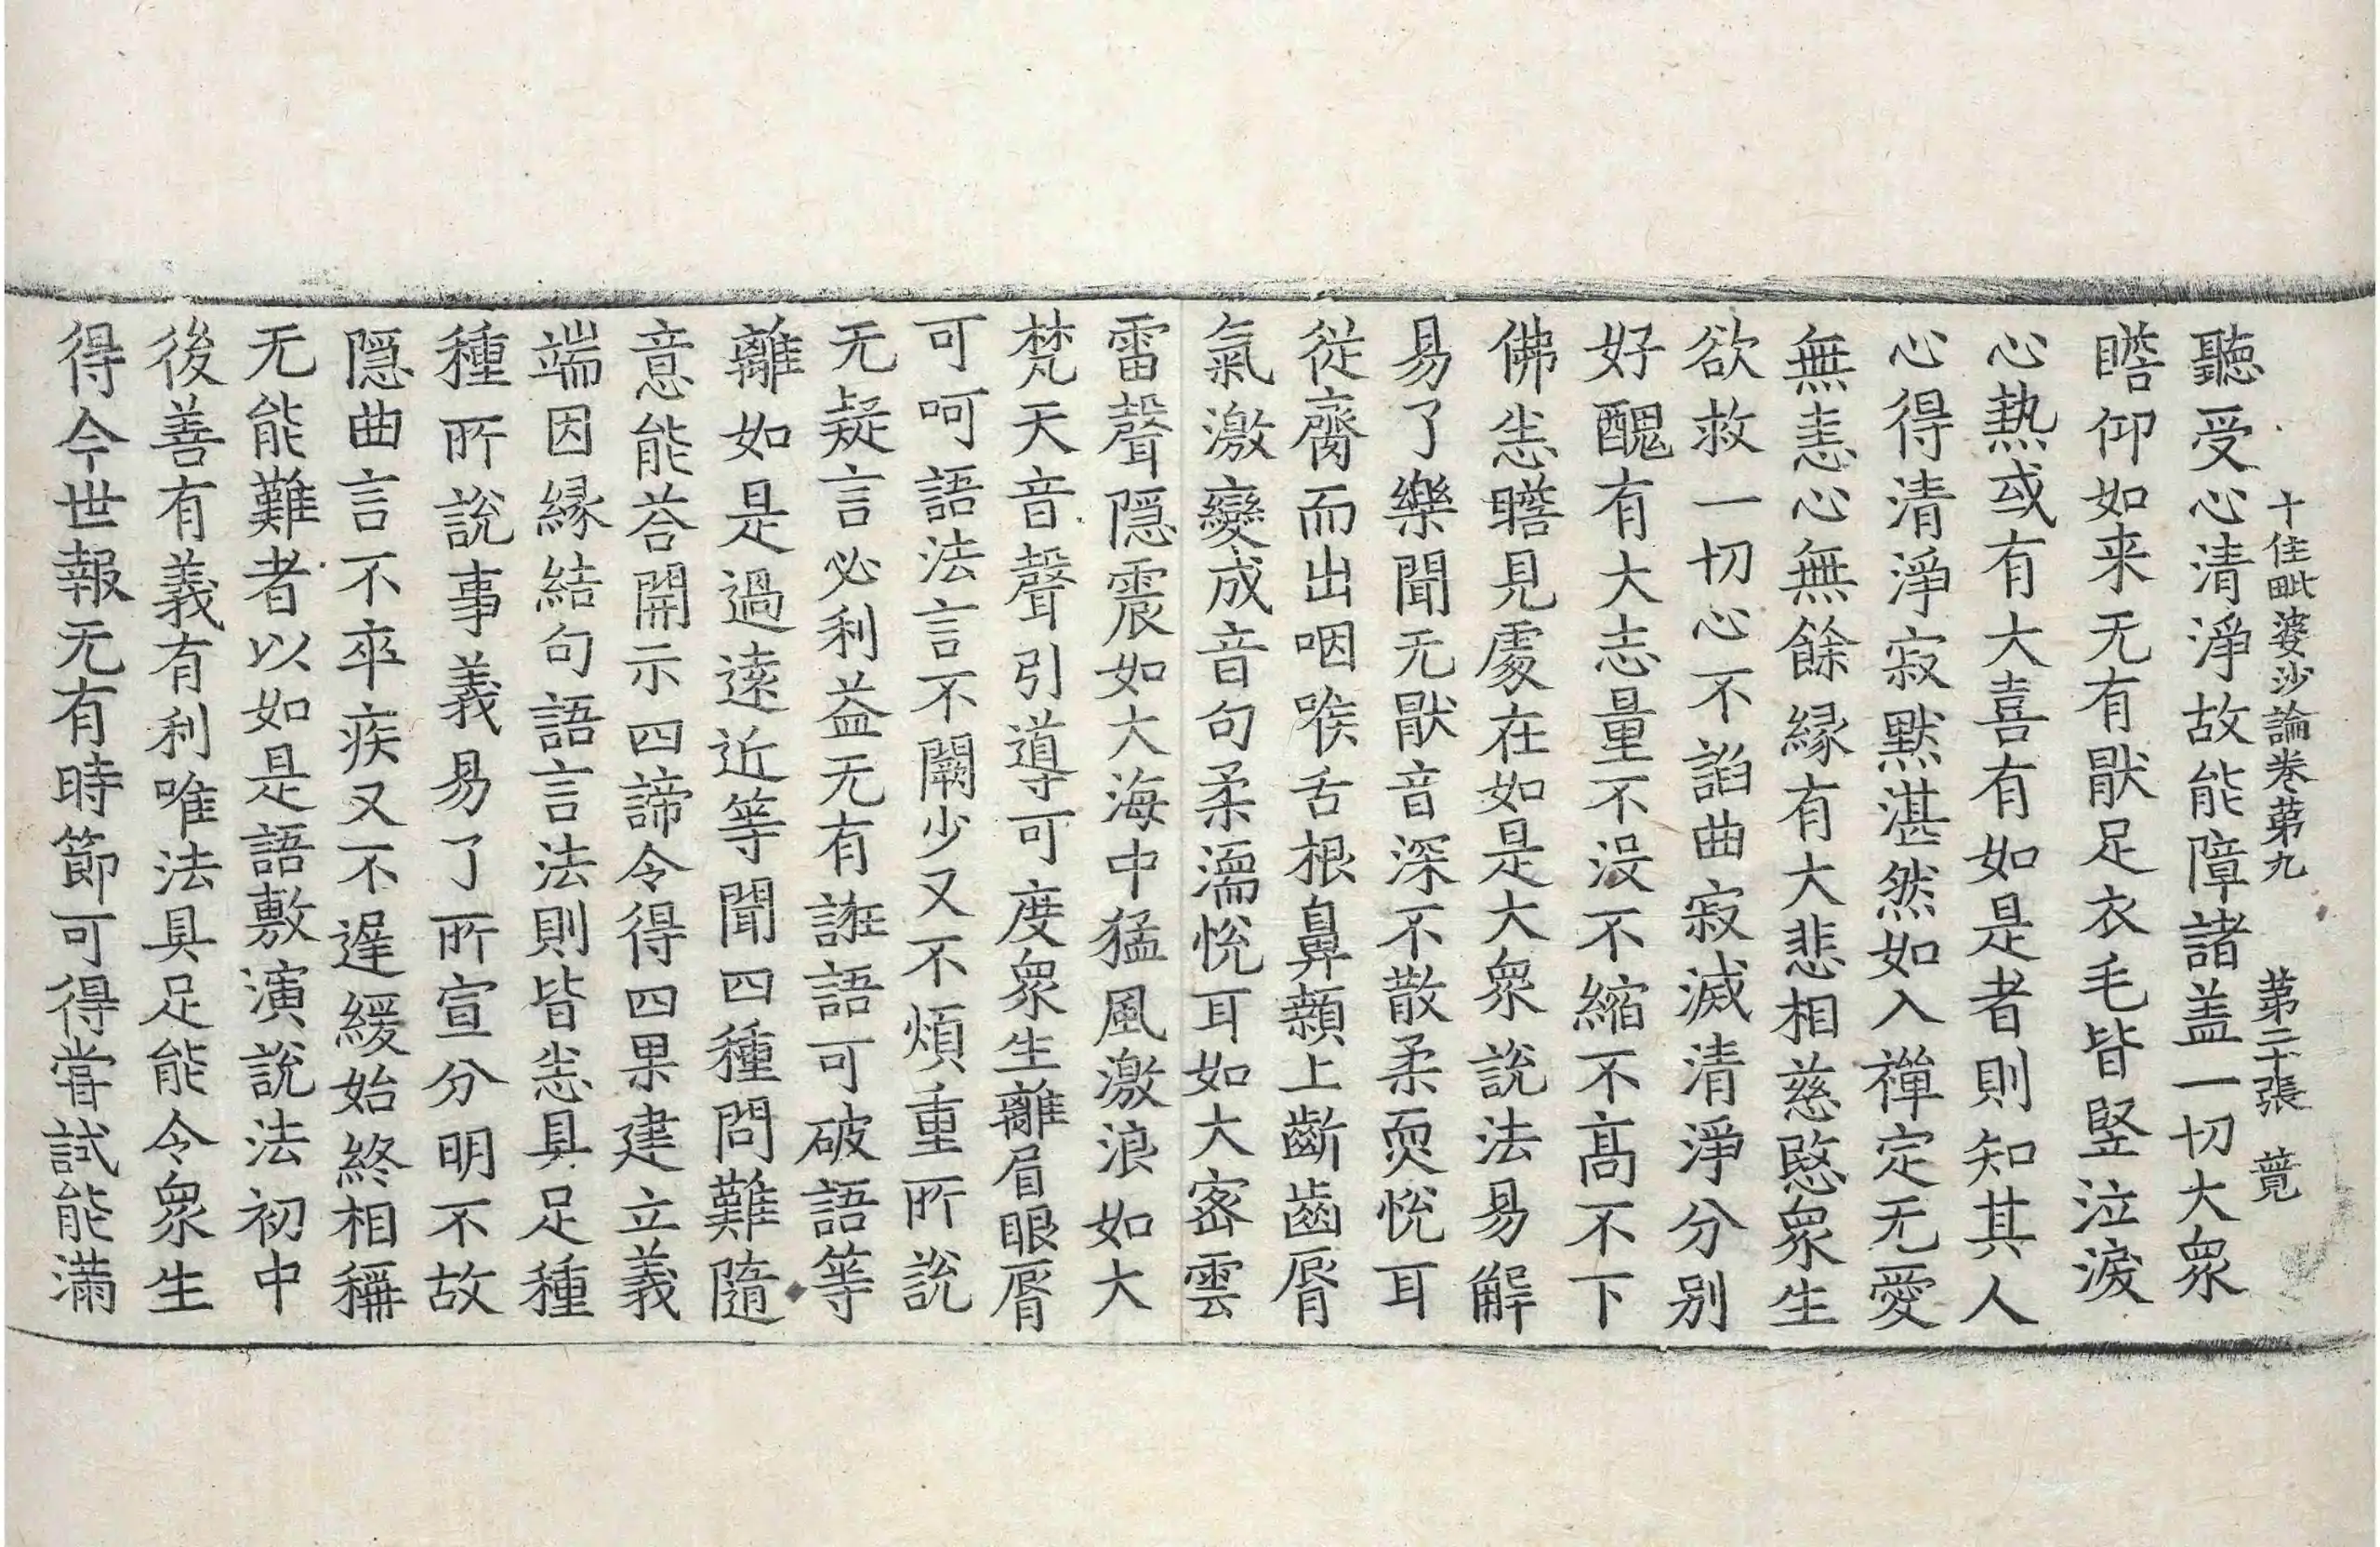 十住毗婆沙論卷苐九 苐二十張 萖
聽受心清淨故能障諸盖一切大衆
瞻仰如来无有猒足衣毛皆竪泣淚
心熱或有大喜有如是者則知其人
心得清淨寂默湛然如入禪定无愛
無恚心無餘緣有大悲相慈愍衆生
欲救一切心不諂曲寂滅清淨分别
好醜有大志量不没不縮不髙不下
佛悉瞻見處在如是大衆說法易解
易了樂聞无猒音深不散柔耎悅耳
從齎而出咽喉舌根鼻顙上齗齒脣
氣激變成音句柔濡悅耳如大宻雲
雷聲隱震如大海中猛風激浪如大
梵天音聲引導可度衆生離眉眼脣
可呵語法言不闕少又不煩重所說
无疑言必利益无有誑語可破語等
離如是過遠近等聞四種問難隨
意能荅開示四諦令得四果建立義
端因緣結句語言法則皆悉具足種
種所說事義易了所宣分明不故
隱曲言不卒疾又不遲緩始終相稱
无能難者以如是語敷演說法初中
後善有義有利唯法具足能令衆生
得今世報无有時節可得嘗試能滿